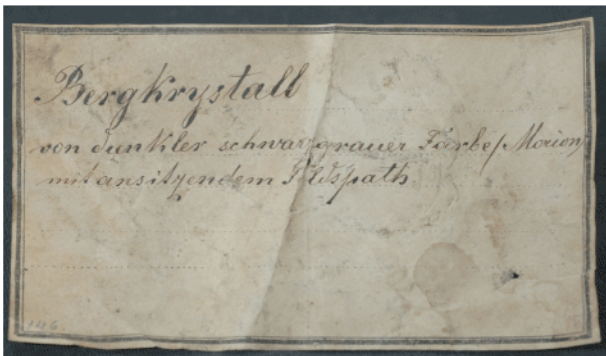 Bergkrystall
von dunkler schwarzgrauer Farbe/Morion/
mit ansitzendem Feldspath.
146